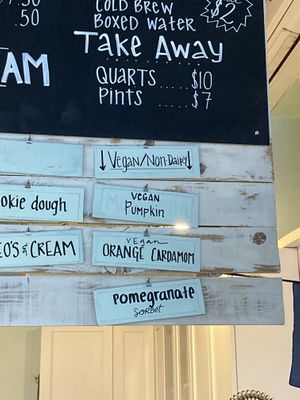 .50
.50
COLD BREW
BOXED WATER
$2
AM
Take Away
QUARTS ..... $10
Pints ..... $7
↓ Vegan/Non-Dairy ↓
okie dough
VEGAN
Pumpkin
EOS & CREAM
vegan
ORANGE CARDAMOM
pomegranate
SORBET